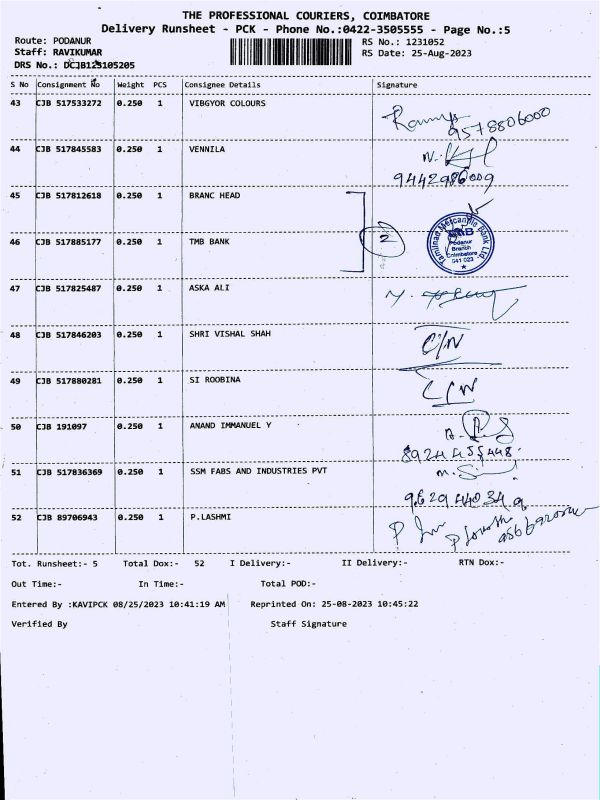 THE PROFESSIONAL COURIERS, COIMBATORE
Delivery Runsheet - PCK - Phone No.:0422-3505555 - Page No.:5
Route: PODANUR
RS No.: 1231052
Staff: RAVIKUMAR
RS Date: 25-Aug-2023
DRS No.: DCJB123105205
S No Consignment No Weight PCS Consignee Details Signature
43 CJB 517533272 0.250 1 VIBGYOR COLOURS
9578806000
44 CJB 517845583 0.250 1 VENNILA
9442986009
45 CJB 517812618 0.250 1 BRANC HEAD
46 CJB 517885177 0.250 1 TMB BANK 2
Tamilnad Mercantile Bank Ltd
Podanur
Branch
Coimbatore
641 023
47 CJB 517825487 0.250 1 ASKA ALI
48 CJB 517846203 0.250 1 SHRI VISHAL SHAH C/N
49 CJB 517880281 0.250 1 SI ROOBINA
50 CJB 191097 0.250 1 ANAND IMMANUEL Y
51 CJB 517836369 0.250 1 SSM FABS AND INDUSTRIES PVT
52 CJB 89706943 0.250 1 P.LASHMI
Tot. Runsheet:- 5 Total Dox:- 52 I Delivery:- II Delivery:- RTN Dox:-
Out Time:- In Time:- Total POD:-
Entered By :KAVIPCK 08/25/2023 10:41:19 AM Reprinted On: 25-08-2023 10:45:22
Verified By Staff Signature